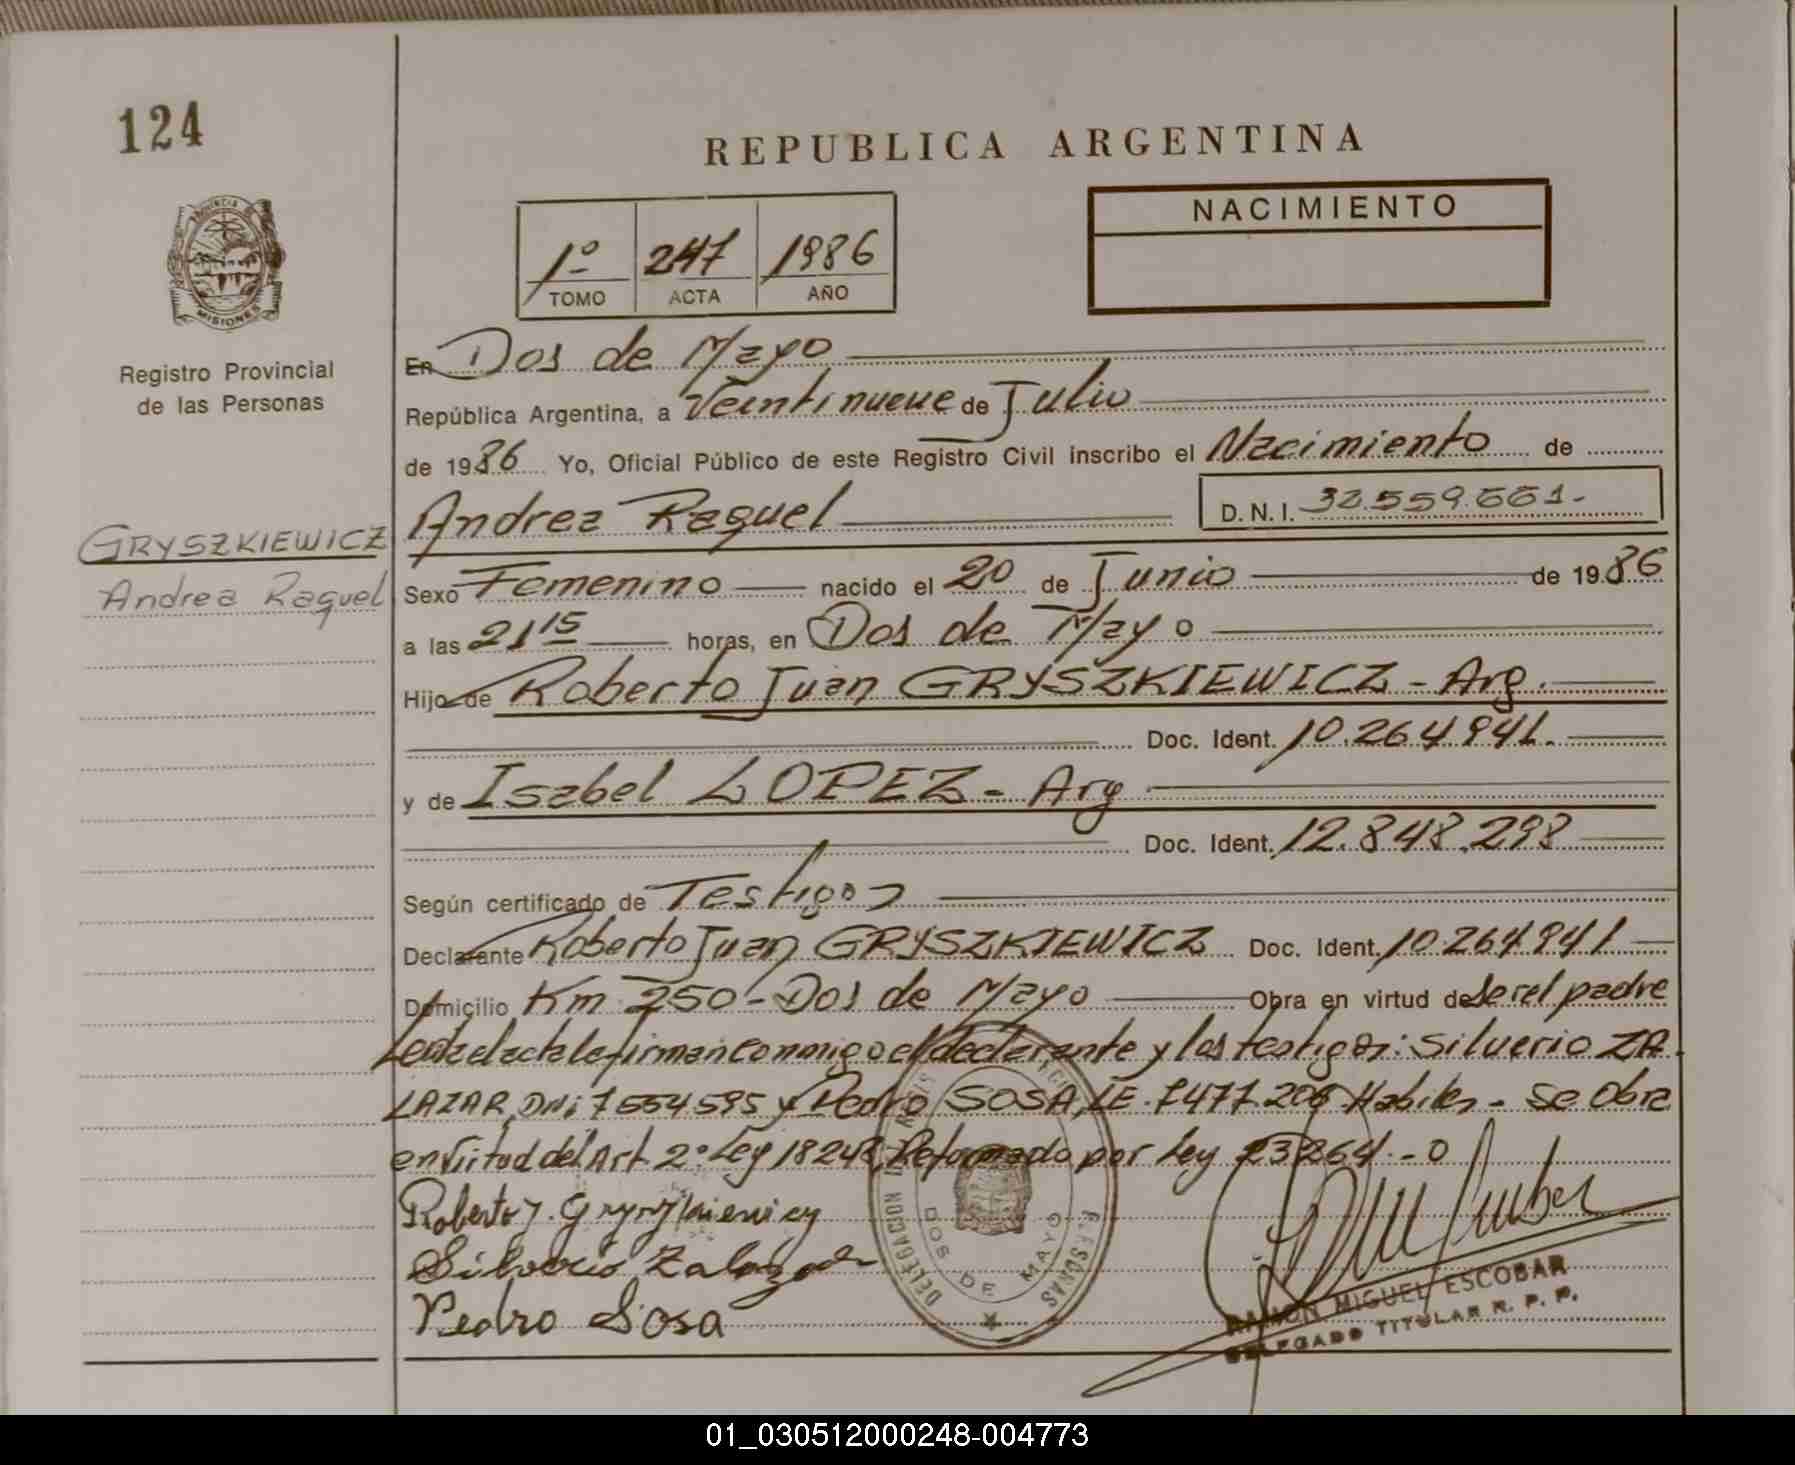 124
REPUBLICA ARGENTINA
NACIMIENTO
1º 247 1986
TOMO ACTA AÑO
PROVINCIA DE
MISIONES
Registro Provincial
de las Personas
En Dos de Mayo
República Argentina, a Veintinueve de Julio
de 1986 Yo, Oficial Público de este Registro Civil inscribo el Nacimiento de
GRYSZKIEWICZ
Andrea Raquel
Andrea Raquel D.N.I. 32.559.661.-
Sexo Femenino nacido el 20 de Junio de 1986
a las 21 15 horas, en Dos de Mayo
Hijo de Roberto Juan GRYSZKIEWICZ - Arg.
Doc. Ident. 10.264.941.
y de Isabel LOPEZ - Arg
Doc. Ident. 12.848.298
Según certificado de Testigos
Declarante Roberto Juan GRYSZKIEWICZ Doc. Ident. 10.264.941
Domicilio Km 250 - Dos de Mayo Obra en virtud de ser el padre
Leida el acta la firman conmigo el declarante y los testigos: Silverio ZA
LAZAR, DNi 7554595 y Pedro SOSA, LE. 7477.206 Habiles - Se Obra
en Virtud del Art 2º Ley 18248, Reformado por Ley 23264.-0
Roberto J.
Silverio Zalazar
Pedro Sosa
DELEGACION
PERSONAS
DOS DE MAYO
RAMON MIGUEL ESCOBAR
DELEGADO TITULAR R. P. P.
01_030512000248-004773